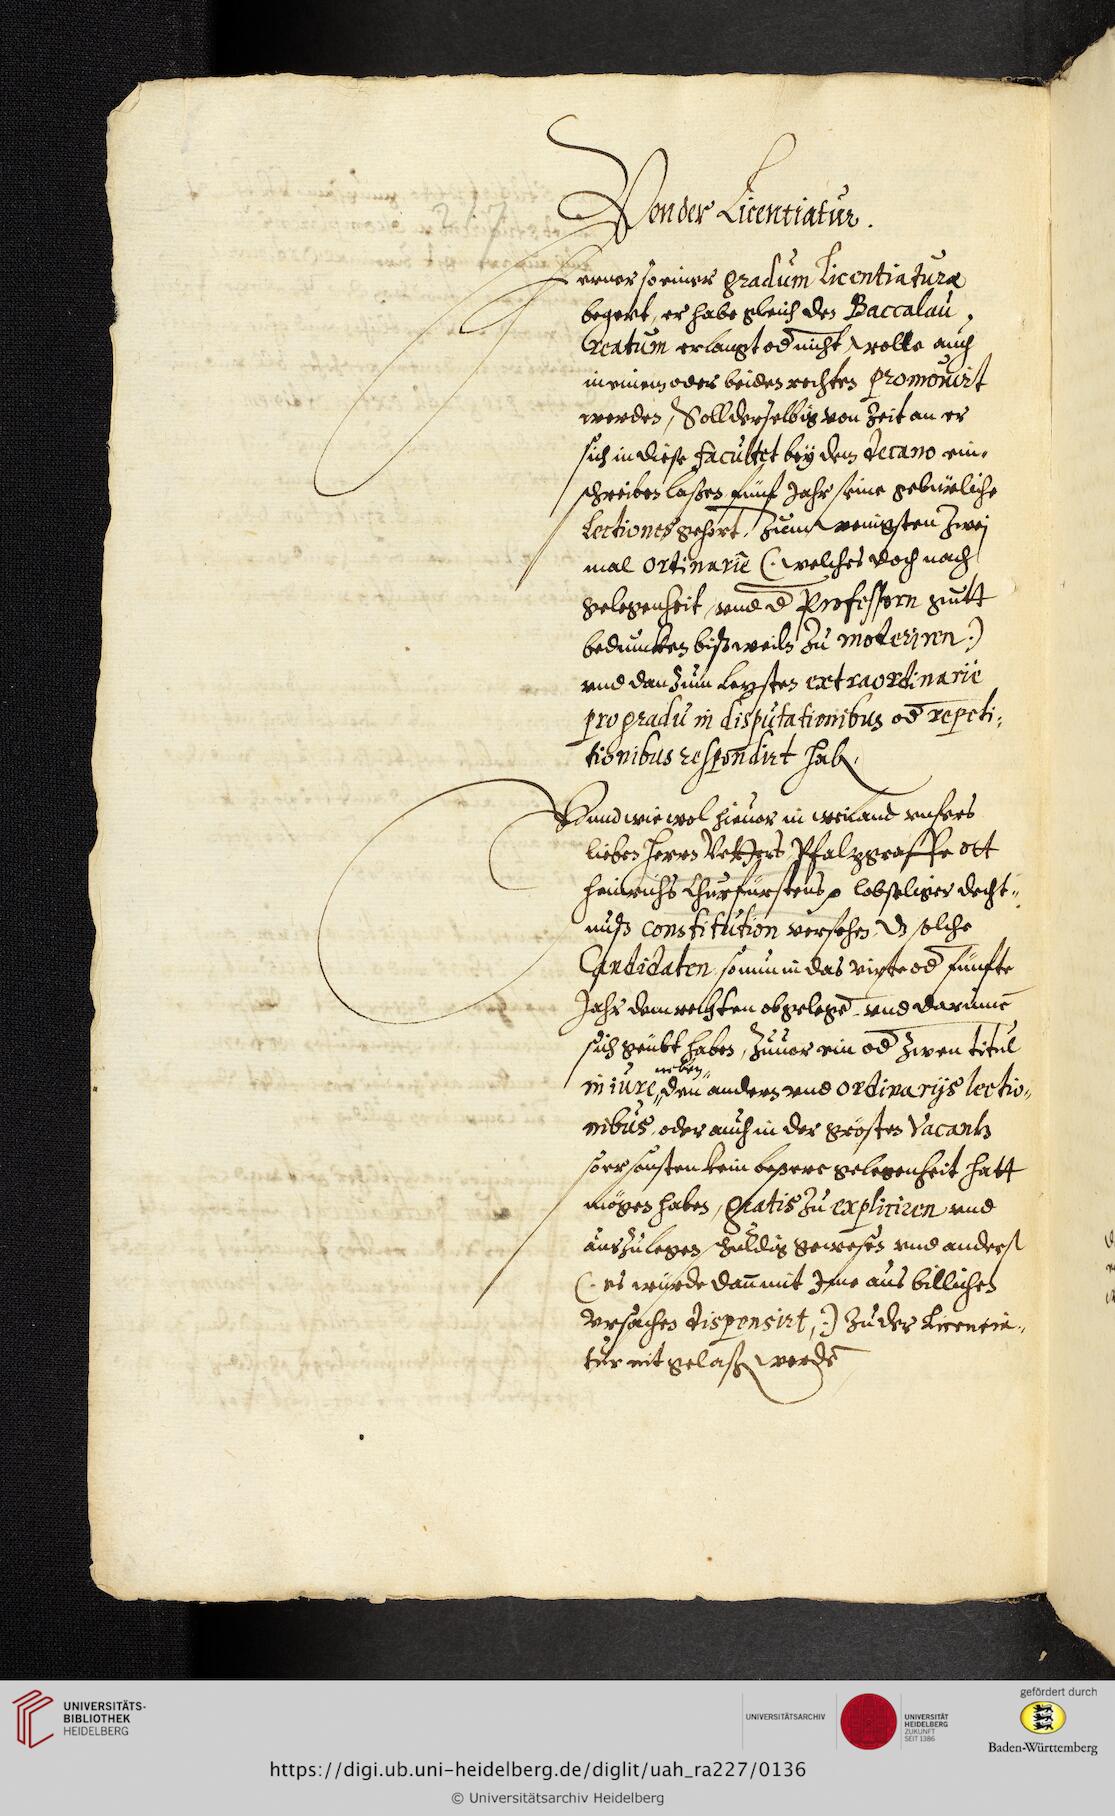 Von der Licentiatur.
Ferner so einer gradum Licentiaturæ
begert, er habe gleich den Baccalau,
reatum erlangt od nicht, wolle auch
in einem oder beiden rechten promovirt
werden, Soll derselbig von Zeit an er
sich in diese facultet bey dem decano ein,
schreiben laßen, fünf Jahr seine gebürliche
Lectiones gehort, Zum wenigsten Zwej
mal ordinarie (: welches doch nach
gelegenheit, vnd d Professorn gutt
beduncken bißweiln Zu moderiren :)
vnd dan Zum letzsten extraordinarie
pro gradu in disputationibus od repeti,
tionibus respondirt hab.
Vnnd wie wol hieuor in weiland vnsers
lieben Herrn Vetters Pfalzgraffe Ott
Heinrichs Churfürstens lobseliger decht,,
nuß constitution versehen, dz solche
Candidaten, so nun in das virte od fünfte
Jahr dem rechten obgelegē, vnd darinnē
sich geübt haben, Zuuor ein od Zwen titul
in iure, neben den andern vnd ordinarijs lectio,,
nibus, oder auch in der grösten Vacantz
so er sonsten kein beßere gelegenheit hatt
mögen haben, gratis Zu expliciren vnd
auszulegen, schuldig gewesen vnd anderst
(: es würde dan mit Ime aus billichen
vrsachen dispensirt, :) Zu der Licentia,,
tur nit gelaßen werdē
UNIVERSITÄTS-
BIBLIOTHEK
HEIDELBERG
UNIVERSITÄTSARCHIV
UNIVERSITÄT
HEIDELBERG
ZUKUNFT
SEIT 1386
gefördert durch
Baden-Württemberg
https://digi.ub.uni-heidelberg.de/diglit/uah_ra227/0136
© Universitätsarchiv Heidelberg